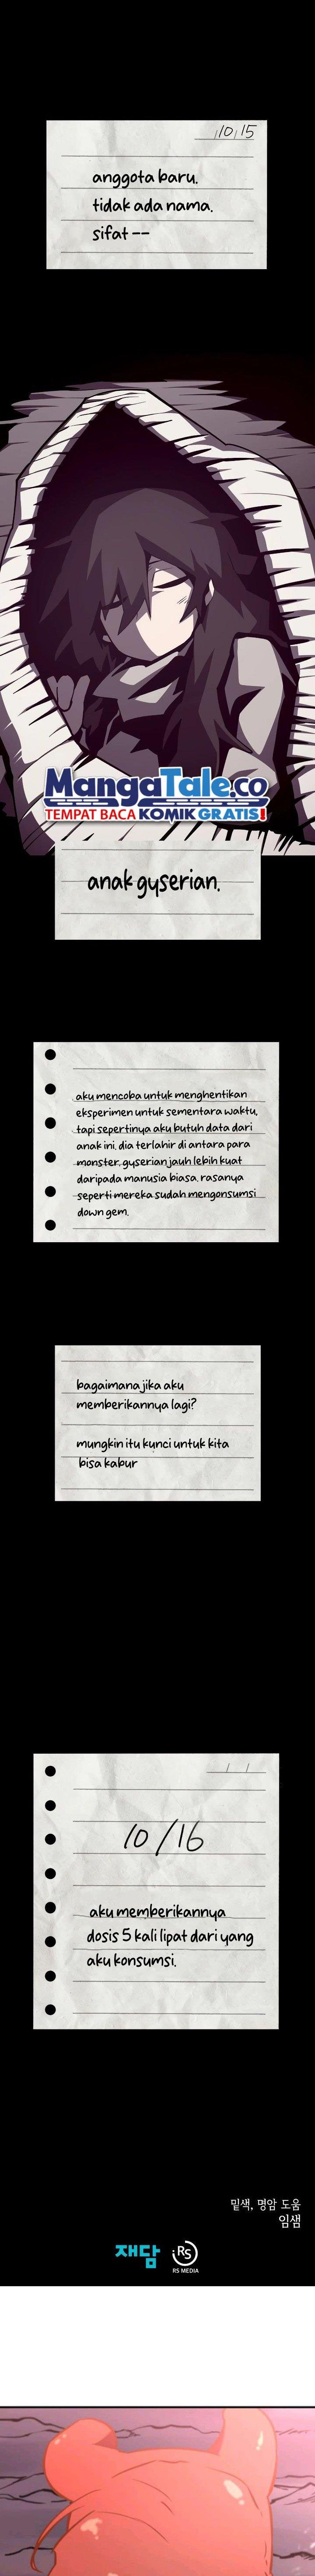 10/15
anggota baru.
tidak ada nama.
sifat --
MangaTale.co
TEMPAT BACA KOMIK GRATIS!
anak gyserian.
aku mencoba untuk menghentikan
eksperimen untuk sementara waktu.
tapi sepertinya aku butuh data dari
anak ini. dia terlahir di antara para
monster. gyserian jauh lebih kuat
daripada manusia biasa. rasanya
seperti mereka sudah mengonsumsi
down gem.
bagaimana jika aku
memberikannya lagi?
mungkin itu kunci untuk kita
bisa kabur
10/16
aku memberikannya
dosis 5 kali lipat dari yang
aku konsumsi.
밑색, 명암 도움
임샘
재담
RS
RS MEDIA